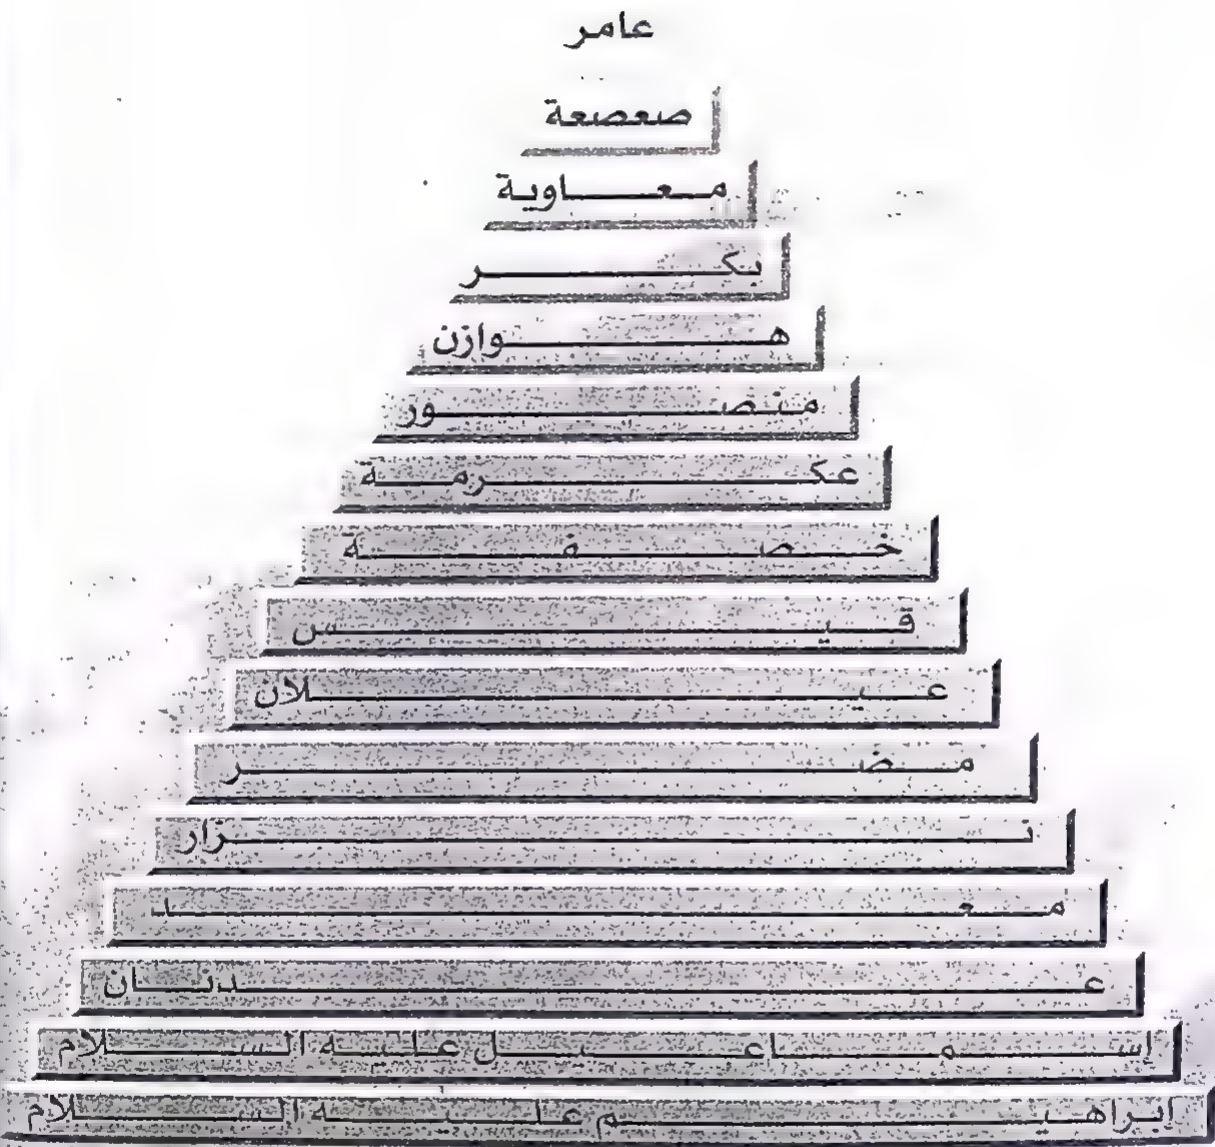 عامر
صعصعة
معاوية
بكر
هوازن
منصور
عكرمة
خصفة
قيس
عيلان
مضر
نزار
معد
عدنان
إسماعيل عليه السلام
إبراهيم عليه السلام